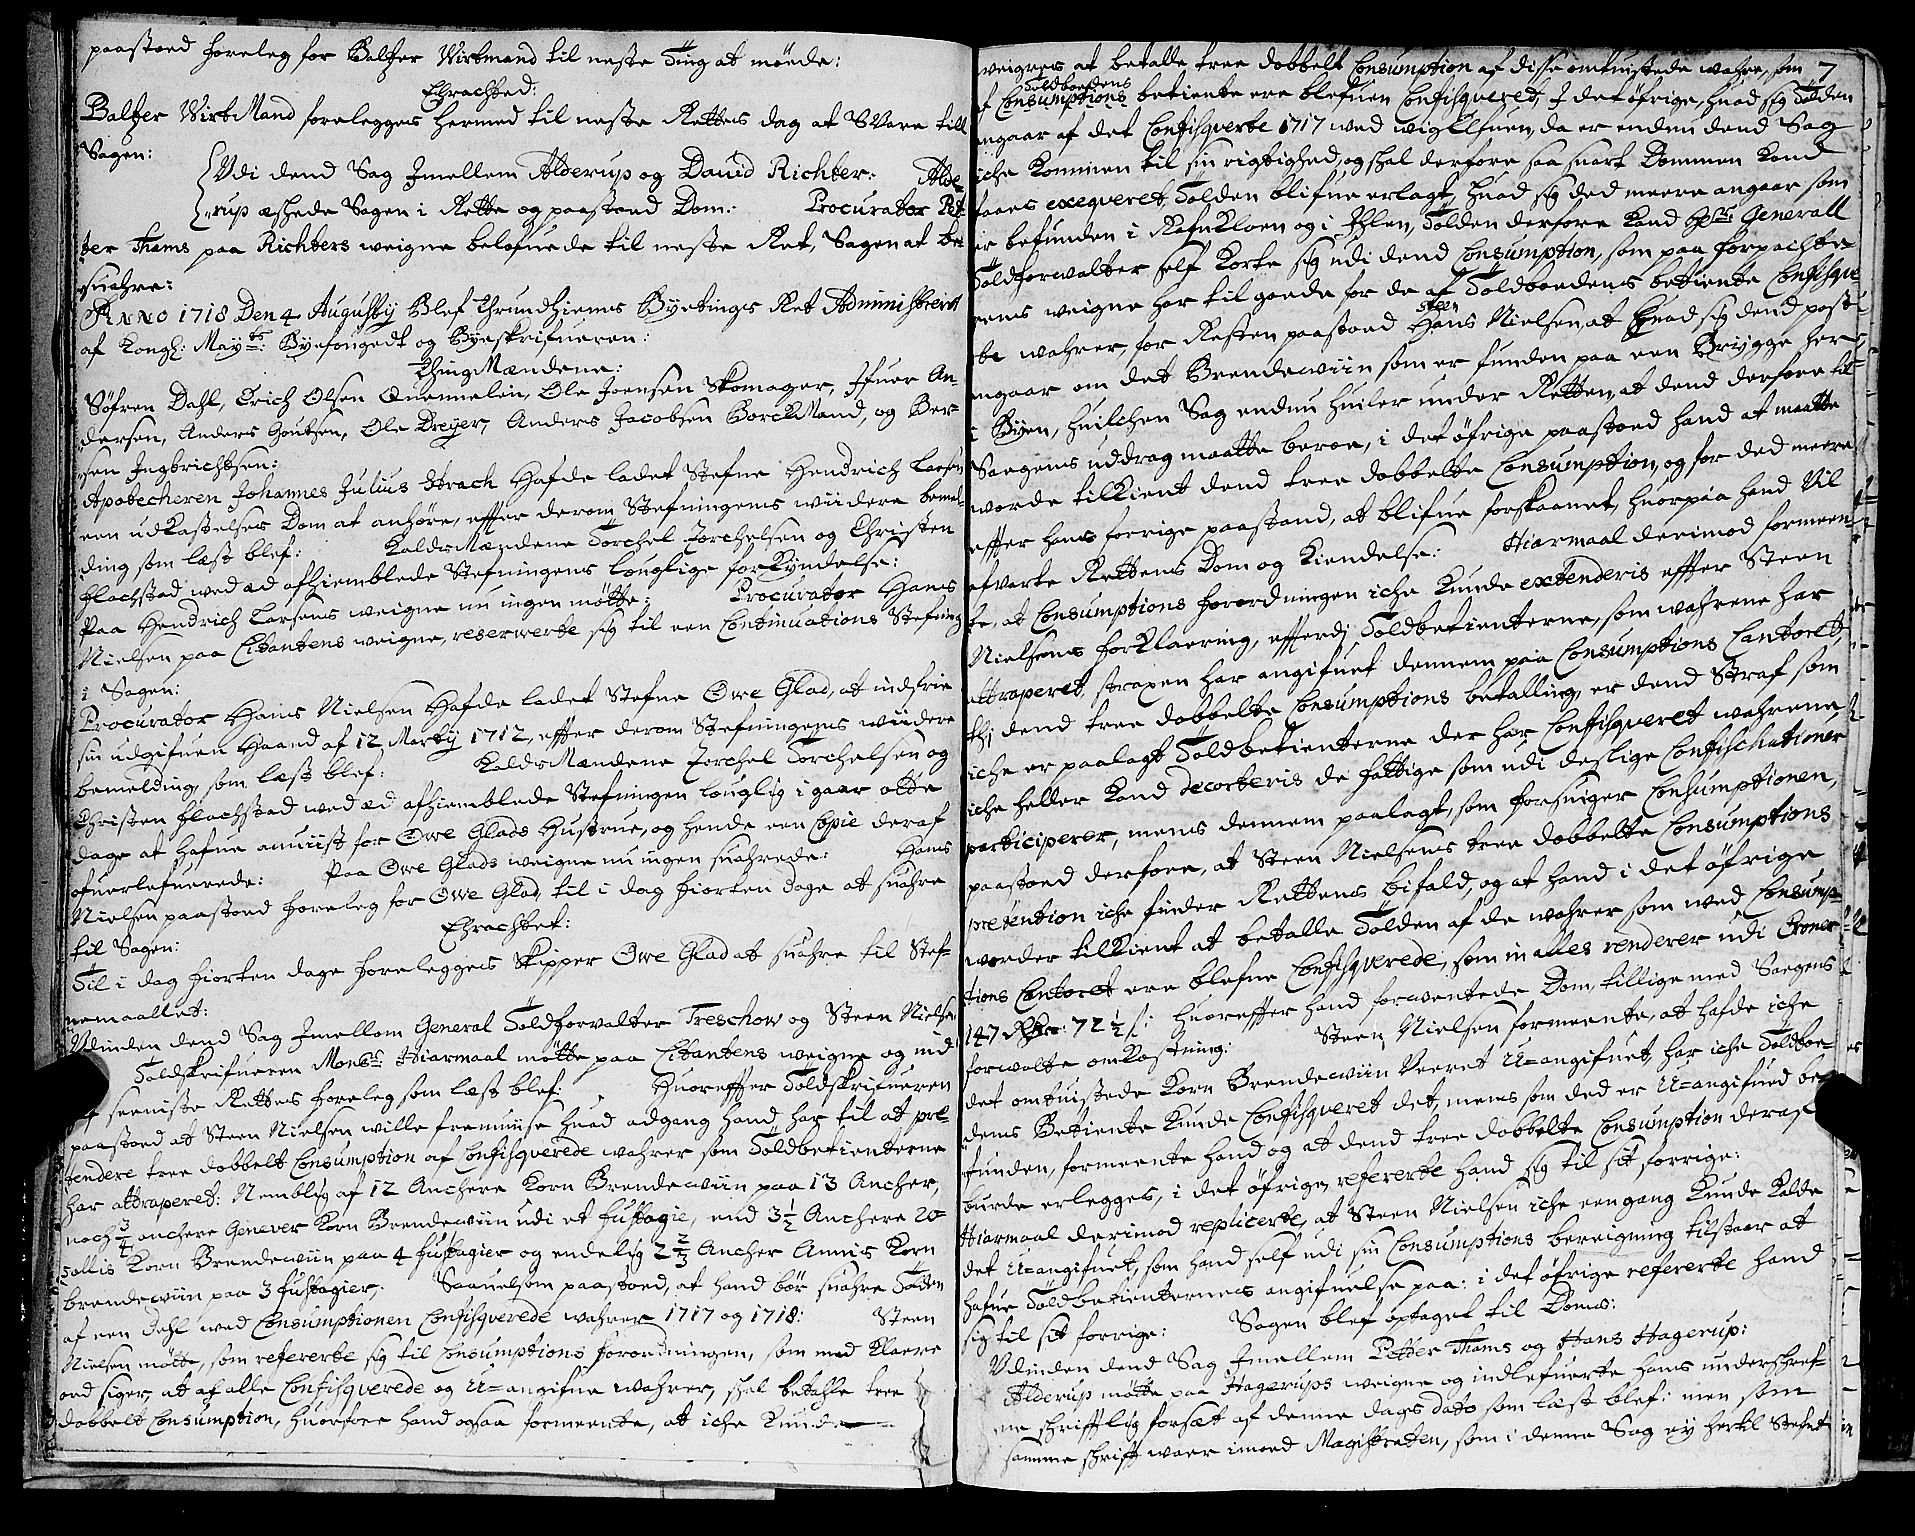 paastoed foreleg for Baltzer Wirtmand til neste Ting at møede:
Efrachted:
Baltzer WirtMand foreleggis hermed til neste Rettes dag at SVare till
Sagen:
Udi dend Sag Jmellem Alderup og David Richter: Alde-
rup æskede Sagen i Rette og paastoed Dom: Procurator Pet-
ter Thams paa Richters weigne belofuede til neste Ret, Sagen at be-
suahre:
Anno 1718 Den 4 Augustij Blef Thrundhiems Byetings Ret Administreret
af Kongl: Mayts: Byefougedt og Byeskrifueren:
ThingMændene:
Søfren Dahl, Erich Olsen Quennelin, Ole Joensen Skomager, Jfuer An-
dersen, Anders Goutsen, Ole Dreyer, Anders Jacobsen BorckMand, og Ber-
sen Jngbrichtsen:
Apotecheren Johannes Julius Strach Hafde ladet Stefne Hendrich Larsen
een udkastelses Dom at anhøre, effter derom Stefningens wiidere bemel-
ding som læst blef: KaldsMændene Torchel Torchelsen og Christen
Flachstad wed æd afhiemblede Stefningens louglige forkyndelse:
Paa Hendrich Larsens weigne nu ingen møtte: Procurator Hans
Nielsen paa Citantens weigne, reserwerte sig til een Continuations Stefning
i Sagen:
Procurator Hans Nielsen Hafde ladet Stefne Owe Glad, at indfrie
sin udgifuen Haand af 12 Martij 1712, effter derom Stefningens wiidere
bemelding, som læst blef: KaldsMændene Torchel Torchelsen og
Christen Flachstad wed æd afhiemblede Stefningen louglig i gaar otte
dage at hafue anuiist for Owe Glads Hustrue, og hende een Copie deraf
ofuerlefuerede: Paa Owe Glads weigne nu ingen suahrede: Hans
Nielsen paastoed foreleg for Owe Glad, til i dag fiorten dage at suahre
til Sagen:
Efrachtet:
Til i dag fiorten dage foreleggis Skipper Owe Glad at suahre til Stef-
nemaallet:
Udinden dend Sag Jmellom General Toldforvalter Treschow og Steen Nielsen
Toldskrifueren Monsr: Hiarmaal møtte paa Citantens weigne og ind
seeniste Rettes foreleg som læst blef: Huoreffter Toldskrifueren
paastoed at Steen Nielsen wille fremuiise huad adgang hand har til at pre-
tendere tree dobbelt Consumption af Confisqverede wahrer som Toldbetienterne
har attraperet: Nemblig af 12 Anchere Korn Brendewiin paa 13 Ancher,
noch 3/4 anchere Genever Korn Brendewiin udi et fustagie, end 3 1/2 Anchere 20-
sallis Korn Brendewiin paa 4 fustagier og endelig 2 2/3 Ancher Annis Korn
brendewiin paa 3 fustagier, Saauelsom paastoed, at hand bør suahre Tolden
af een dehl wed Consumptionen Confisqverede wahrer 1717 og 1718: Steen
Nielsen møtte, som refererte sig til Consumptions forordningen, som med klare
ord siger, at af alle Confisqverede og U-angifne wahrer, skal betahle tree
dobbelt Consumption, huorfore hand ogsaa formeente, at iche kunde
weigres at betalle tree dobbelt Consumption af disse omtuistede wahre, som 7
af Toldboedens Consumptions betiente ere blefuen Confisqveret, J det øfrige, huad sig Tolden
angaar af det Confisqverte 1717 wed wigElfuen, da er endnu dend Sag
iche kommen til sin rigtighed, og skal derfore saa snart Dommen kand
faaes exeqveret Tolden blifue erlagt, huad sig ded meere angaar som
er befunden i Rafnkloen og i Jhlen, Tolden derfore kand Hr: Generall
Toldforwalter self korte sig udi dend Consumption, som paa forpachte-
rens weigne har til goede for de af Toldboedens betiente Confisqver-
te wahrer, for Resten paastoed Steen Nielsen at huad sig dend post
angaar om det Brendewiin som er funden paa een Brygge her
i Byen, huilchen Sag endnu huiler under Retten, at dend derfore til
Saegens uddrag maatte beroe, i det øfrige paastoed hand at maatte
worde tilkient dend tree dobbelte Consumption, og for ded meere
effter hans forrige paastand, at blifue forskaanet, huorpaa hand Vil
afvarte Rettens Dom og kiendelse: Hiarmaal derimod formeen-
te, at Consumptions forordningen iche kunde extenderis effter Steen
Nielsens forklaering, efterdj Toldbetienterne, som wahrene har
attraperet, straxen har angifuet dennem paa Consumptions Cantoret,
thj dend tree dobbelte Consumptions betalling, er dend Straf som
iche er paalagt Toldbetienterne der har Confisqveret wahrene,
iche heller kand decorteris de fattige som udi deslige Confischationer
participerer, mens dennem paalagt, som forsuiger Consumptionen,
paastoed derfore, at Steen Nielsens tree dobbelte Consumptions
pretention iche finder Rettens bifald, og at hand i det øfrige
worder tilkient at betalle Tolden af de wahrer som wed Consump-
tions Contoret ere blefne Confisqverede, som in alles renderer udi Croner
147 Rdr: 72 1/2 s: huoreffter hand forwentede Dom, tillige med Saegens
forwolte omkostning: Steen Nielsen formeente, at hafde iche
det omtuistede korn Brendewiin Veeret U-angifuet, har iche Toldboe-
dens Betiente kunde Confisqveret det, mens som ded er U-angifued be-
funden, formeente hand og at dend tree dobbelte Consumption deraf
burde erlegges, i det øfrige, refererte hand sig til sit forrige:
Hiarmaal derimod replicerte, at Steen Nielsen iche eengang kunde kalde
det U-angifuet, som hand self udi sin Consumptions beregning tilstaar at
hafue Toldbetienternes angifuelse paa: i det øfrige refererte hand
sig til sit forrige: Sagen blef optaget til Doms:
Udinden dend Sag Jmellem Petter Thams og Hans Hagerup:
Alderup møtte paa Hagerups weigne og indlefuerte hans underskref-
ne skrifftlig forsæt af denne dags dato som læst blef: men som
samme skrifft waer imoed Magistraten, som i denne Sag ey hertil Stefnt